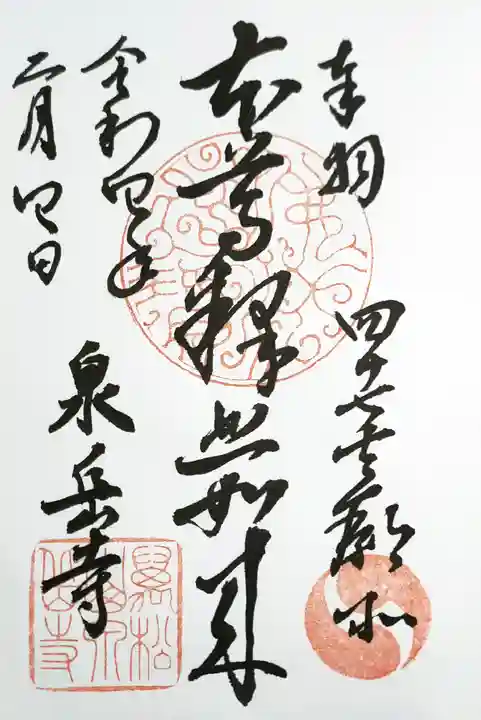 奉拝
四十七士廟所
本尊釋迦如来
令和四年
二月四日
泉岳寺
萬松
山泉
岳寺